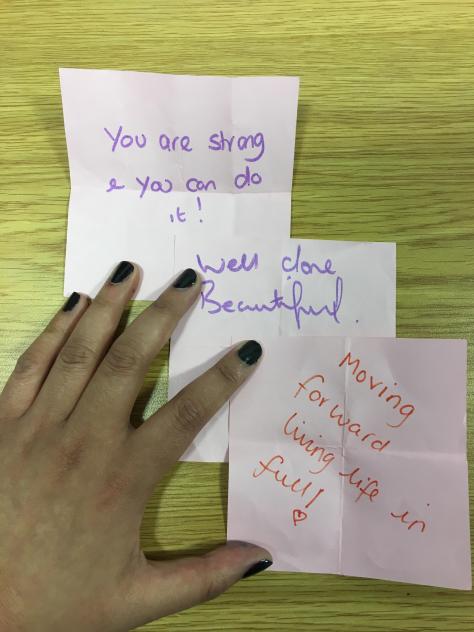 You are strong
& you can do
it!
Well done
Beautiful.
Moving
forward
living life in
full!